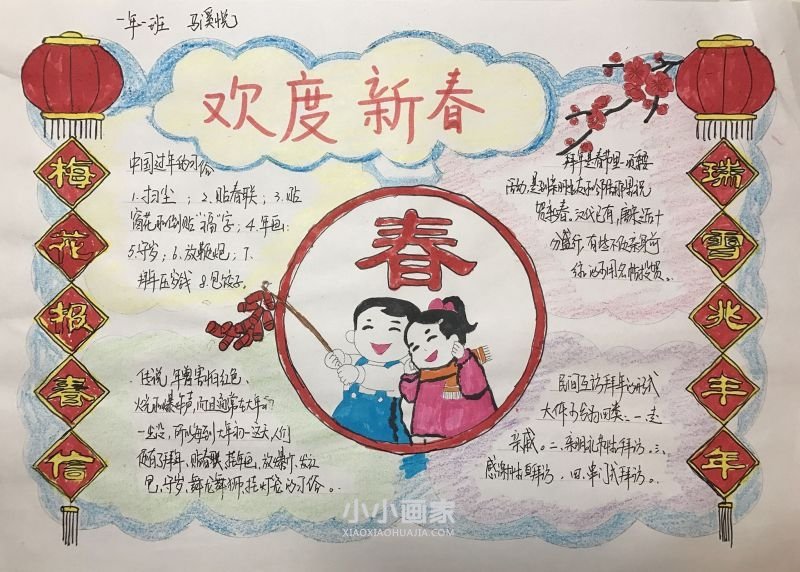 一年一班 马溪悦
欢度新春
梅花报春信
瑞雪兆丰年
春
中国过年的习俗
1.扫尘；2.贴春联；3.贴
窗花和倒贴“福”字；4.年画；
5.守岁；6.放鞭炮；7.
拜年压岁钱 8.包饺子。
拜年是春节里
贺新春。汉代已有，唐宋之后十
分盛行，有些不必亲身前
往，还可用名帖投贺。
传说，年兽害怕红色、
火光和爆炸声，而且通常在大年初
一出没，所以每到大年初一这天，人们
便有了拜年、贴春联、挂年画、放爆竹、发红
包、守岁、舞龙舞狮、挂灯笼的习俗。
民间互访拜年的形式
大体分为四类：一走
亲戚。二、亲朋礼节性拜访。三、
感谢性拜访，四、串门式拜访。
小小画家
XIAOXIAOHUAJIA.COM